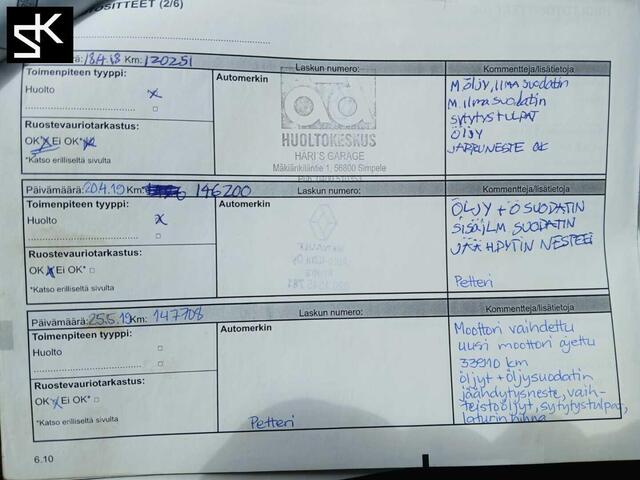 SK
OSITTEET (2/6)
18.4.18 Km: 120251
Laskun numero:
Kommentteja/lisätietoja
Toimenpiteen tyyppi:
Automerkin
Huolto x
Ruostevauriotarkastus:
OK Ei OK*
*Katso erilliseltä sivulta
HUOLTOKESKUS
HARI'S GARAGE
Mäkilänkiläntie 1, 56800 Simpele
M ÖLJY, ILMA SUODATIN
M. ILMA SUODATIN
SYTYTYSTULPAT
ÖLJY
JARRUNESTE OK
Päivämäärä: 20.4.19 Km: 146200
Laskun numero:
Kommentteja/lisätietoja
Toimenpiteen tyyppi:
Automerkin
Huolto x
Ruostevauriotarkastus:
OK x Ei OK*
*Katso erilliseltä sivulta
ÖLJY + Ö SUODATIN
SISÄILM SUODATIN
JÄÄHDYTIN NESTEET
Petteri
Päivämäärä: 25.5.19 Km: 147708
Laskun numero:
Kommentteja/lisätietoja
Toimenpiteen tyyppi:
Automerkin
Huolto
Ruostevauriotarkastus:
OK x Ei OK*
*Katso erilliseltä sivulta
Petteri
Moottori vaihdettu
uusi moottori ajettu
33910 km
öljyt + öljysuodatin
jäähdytysneste, vaih-
teistoöljyt, sytytystulpat,
laturin hihna
6.10